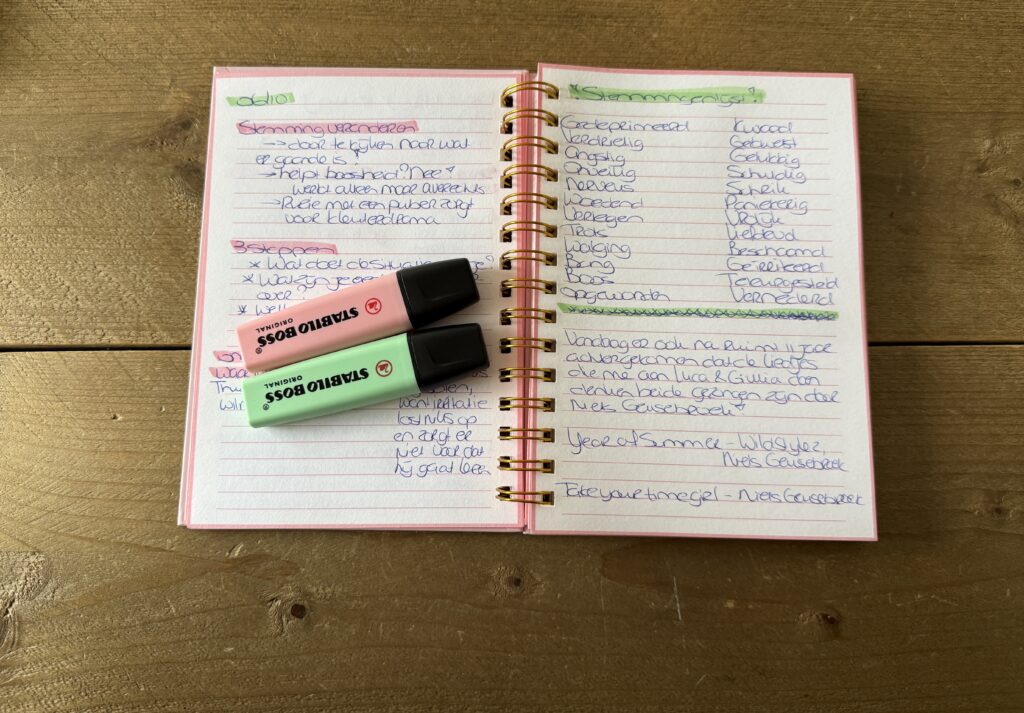 06/10
Stemming veranderen
→ door te kijken naar wat
er gaande is!
→ helpt boosheid? Nee!
werkt alleen maar averechts
→ Ruzie met een puber zorgt
voor kleuterdrama
3 stappen
* Wat doet de situatie
* Wat zijn je
over
* Wel
STABILO BOSS®
ORIGINAL
STABILO BOSS®
ORIGINAL
want irritatie
lost niks op
en zorgt er
niet voor dat
hij gaat leren
*Stemmingenlijst*
Gedeprimeerd Kwaad
Verdrietig Gekwetst
Angstig Gelukkig
Onveilig Schuldig
Nerveus Schrik
Woedend Paniekerig
Verlegen Vrolijk
Trots Liefdevol
Walging Beschaamd
Bang Geïrriteerd
Boos Teleurgesteld
opgewonden Vernederd
Vandaag er ook na ruim 11 jaar
achtergekomen dat de liedjes
die me aan Luca & Giulia doen
denken beide gezongen zijn door
Niels Geusebroek!
Year of Summer - Wildstylez,
Niels Geusebroek
Take your time girl - Niels Geusebroek